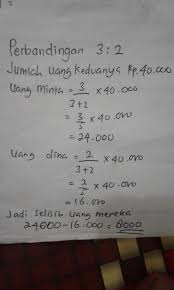 Perbandingan 3:2
Jumlah uang keduanya Rp.40.000
Uang minta = 3/3+2 x 40.000
= 3/5 x 40.000
= 24.000
Uang dina = 2/3+2 x 40.000
= 2/5 x 40.000
= 16.000
Jadi selisih uang mereka
24.000-16.000 = 8000